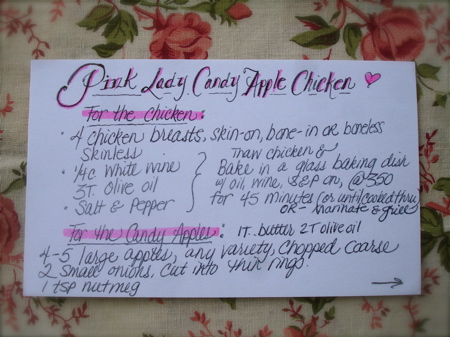 Pink Lady Candy Apple Chicken
For the chicken:
• 4 chicken breasts, skin-on, bone-in or boneless
skinless
• 1/4c White wine
3T. olive oil
• Salt & Pepper
Thaw chicken &
Bake in a glass baking dish
w/ oil, wine, S&P on, @350
for 45 minutes (or until cooked thru)
OR - marinate & grill
For the Candy Apples: 1T. butter 2T olive oil
4-5 large apples, any variety, chopped coarse
2 small onions, cut into thin rings
1 tsp nutmeg